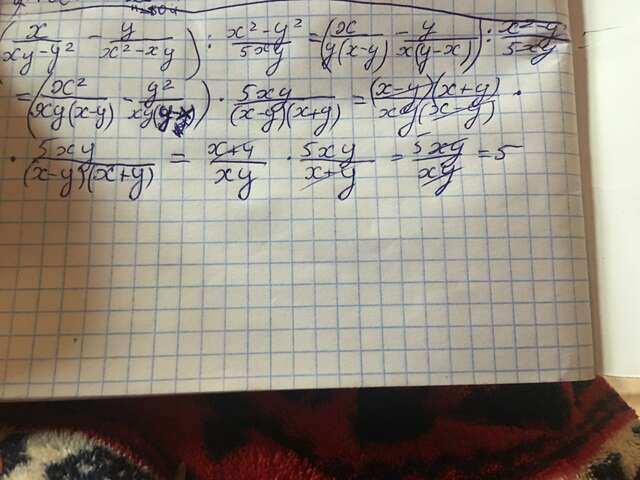 (x/(xy-y²) - y/(x²-xy)) : (x²-y²)/(5xy) = (x/(y(x-y)) - y/(x(y-x))) : (x²-y²)/(5xy)
= (x²/(xy(x-y)) - y²/(xy(y-x))) · 5xy/((x-y)(x+y)) = (x-y)(x+y)/(xy(x-y)) ·
· 5xy/((x-y)(x+y)) = (x+y)/(xy) · 5xy/(x+y) = 5xy/(xy) = 5